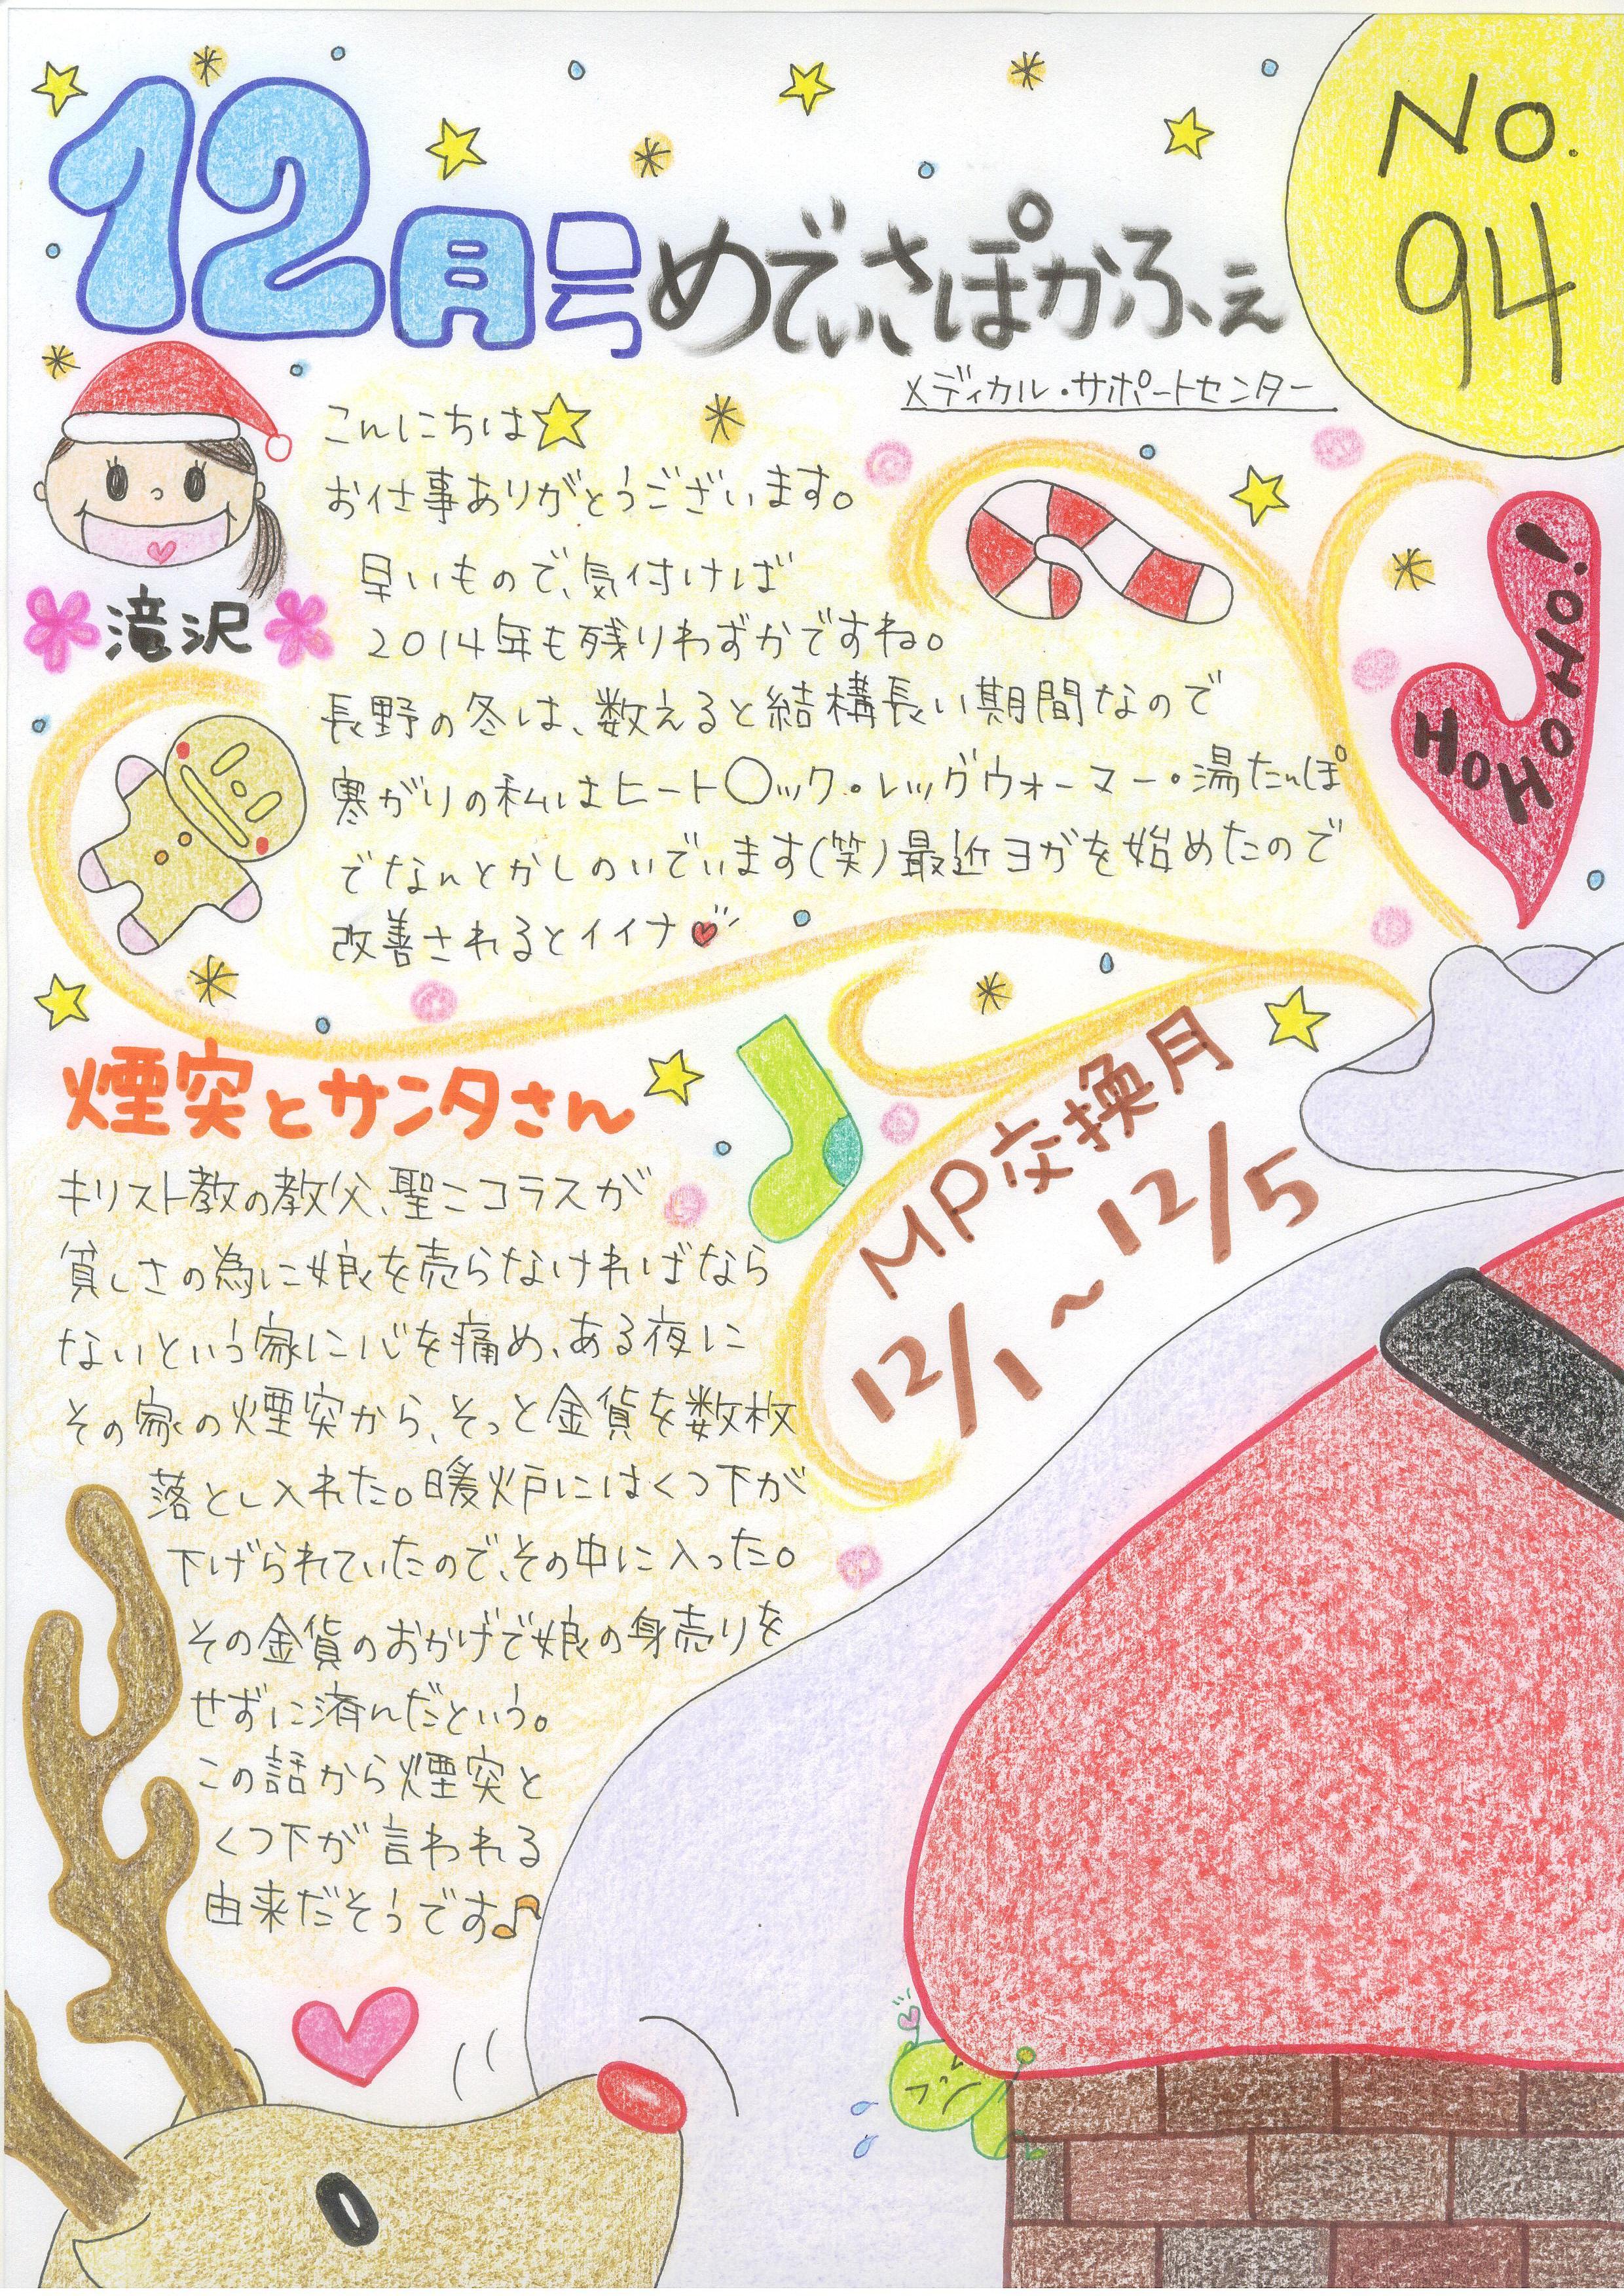 12月号めでぃさぽかふぇ
No.
94
メディカル・サポートセンター
滝沢
こんにちは☆
お仕事ありがとうございます。
早いもので、気付けば
2014年も残りわずかですね。
長野の冬は、数えると結構長い期間なので
寒がりの私はヒート〇ック・レッグウォーマー・湯たんぽ
でなんとかしのいでいます(笑)最近ヨガを始めたので
改善されるとイイナ
HO HO HO HO!
煙突とサンタさん
キリスト教の教父、聖ニコラスが
貧しさの為に娘を売らなければなら
ないという家に心を痛め、ある夜に
その家の煙突から、そっと金貨を数枚
落とし入れた。暖炉にはくつ下が
下げられていたので、その中に入った。
その金貨のおかげで娘の身売りを
せずに済んだという。
この話から煙突と
くつ下が言われる
由来だそうです♪
MP交換月
12/1～12/5